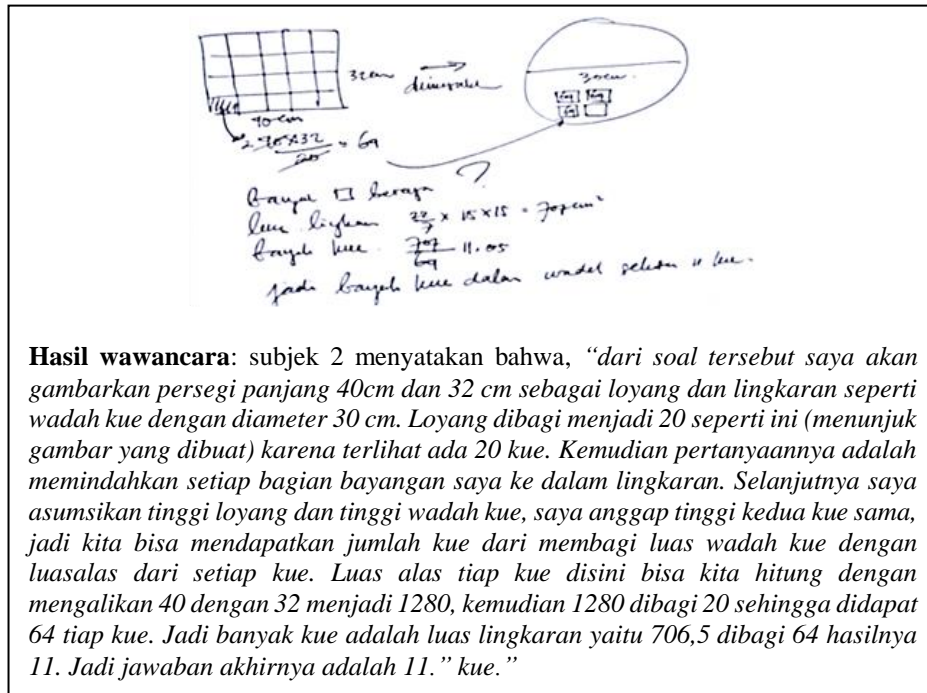 32cm
30cm.
40 cm
2 40×32 = 64
20
banyak □ berapa ?
luas lingkaran 22/7 × 15 × 15 = 707 cm²
banyak kue 707/64 11.05
jadi banyak kue dalam wadah sekitar 11 kue.
Hasil wawancara: subjek 2 menyatakan bahwa, “dari soal tersebut saya akan
gambarkan persegi panjang 40cm dan 32 cm sebagai loyang dan lingkaran seperti
wadah kue dengan diameter 30 cm. Loyang dibagi menjadi 20 seperti ini (menunjuk
gambar yang dibuat) karena terlihat ada 20 kue. Kemudian pertanyaannya adalah
memindahkan setiap bagian bayangan saya ke dalam lingkaran. Selanjutnya saya
asumsikan tinggi loyang dan tinggi wadah kue, saya anggap tinggi kedua kue sama,
jadi kita bisa mendapatkan jumlah kue dari membagi luas wadah kue dengan
luasalas dari setiap kue. Luas alas tiap kue disini bisa kita hitung dengan
mengalikan 40 dengan 32 menjadi 1280, kemudian 1280 dibagi 20 sehingga didapat
64 tiap kue. Jadi banyak kue adalah luas lingkaran yaitu 706,5 dibagi 64 hasilnya
11. Jadi jawaban akhirnya adalah 11.” kue.”